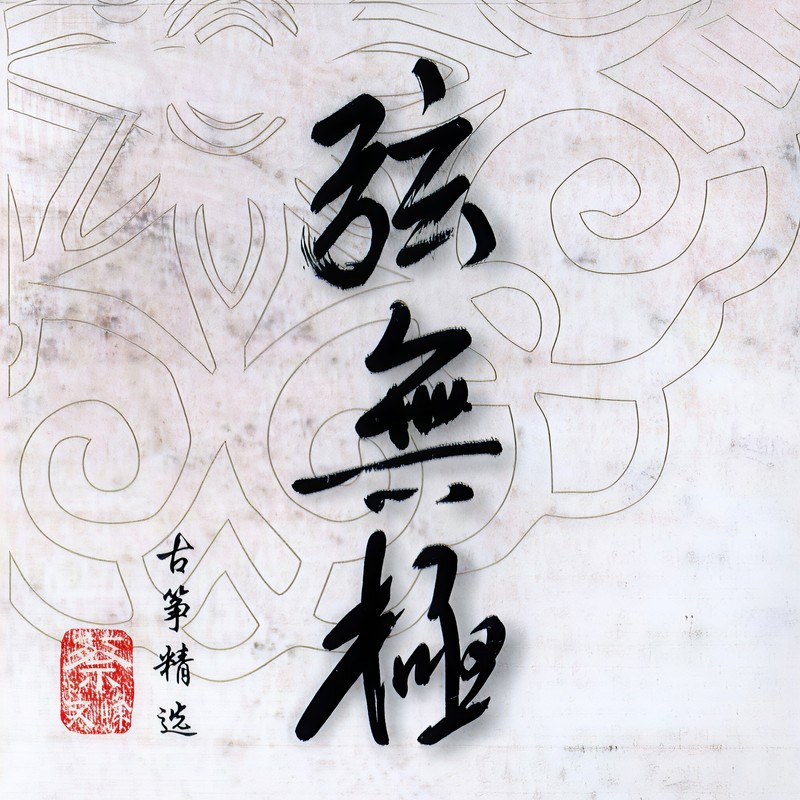 弦無極
古筝精选